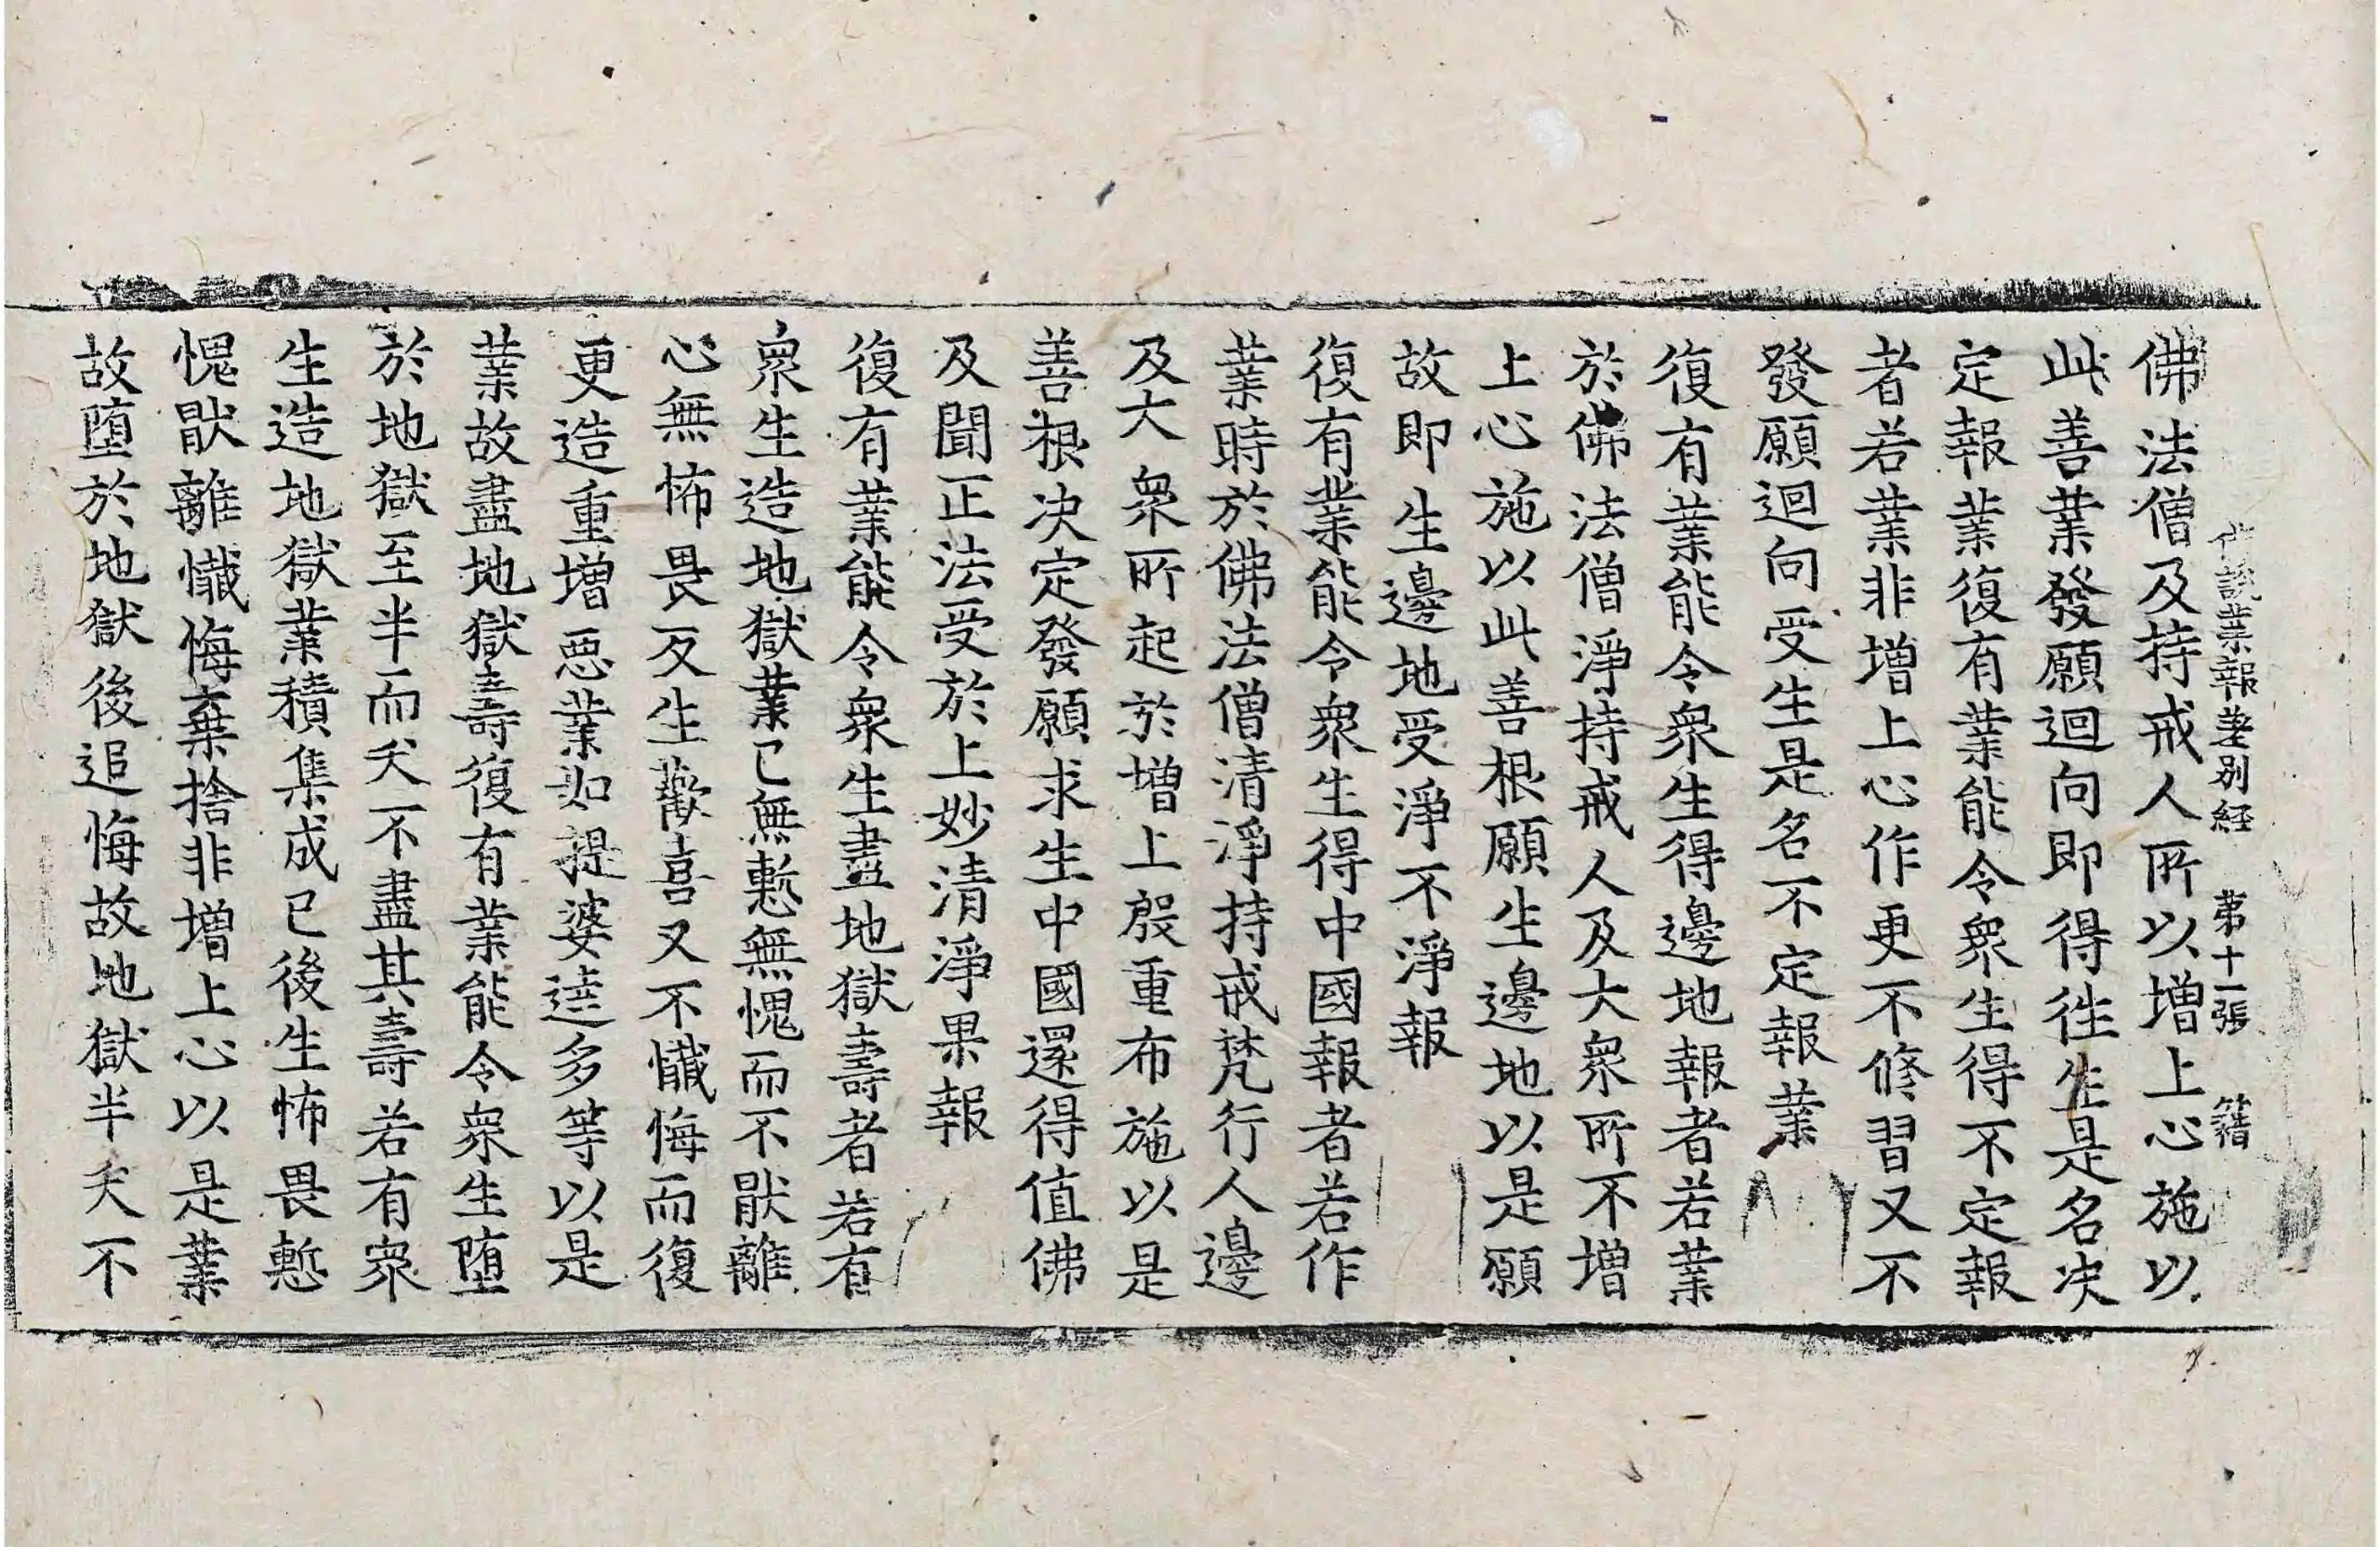 佛說業報差別經 第十一張 籍
佛法僧及持戒人所以增上心施以
此善業發願迴向即得徃生是名决
定報業復有業能令衆生得不定報
者若業非增上心作更不修習又不
發願迴向受生是名不定報業
復有業能令衆生得邊地報者若業
於佛法僧淨持戒人及大衆所不增
上心施以此善根願生邊地以是願
故即生邊地受淨不淨報
復有業能令衆生得中國報者若作
業時於佛法僧清淨持戒梵行人邊
及大衆所起於增上殷重布施以是
善根决定發願求生中國還得值佛
及聞正法受於上妙清淨果報
復有業能令衆生盡地獄壽者若有
衆生造地獄業已無慙無愧而不猒離
心無怖畏反生歡喜又不懺悔而復
更造重增惡業如提婆達多等以是
業故盡地獄壽復有業能令衆生墮
於地獄至半而夭不盡其壽若有衆
生造地獄業積集成已後生怖畏慙
愧猒離懺悔棄捨非增上心以是業
故墮於地獄後追悔故地獄半夭不